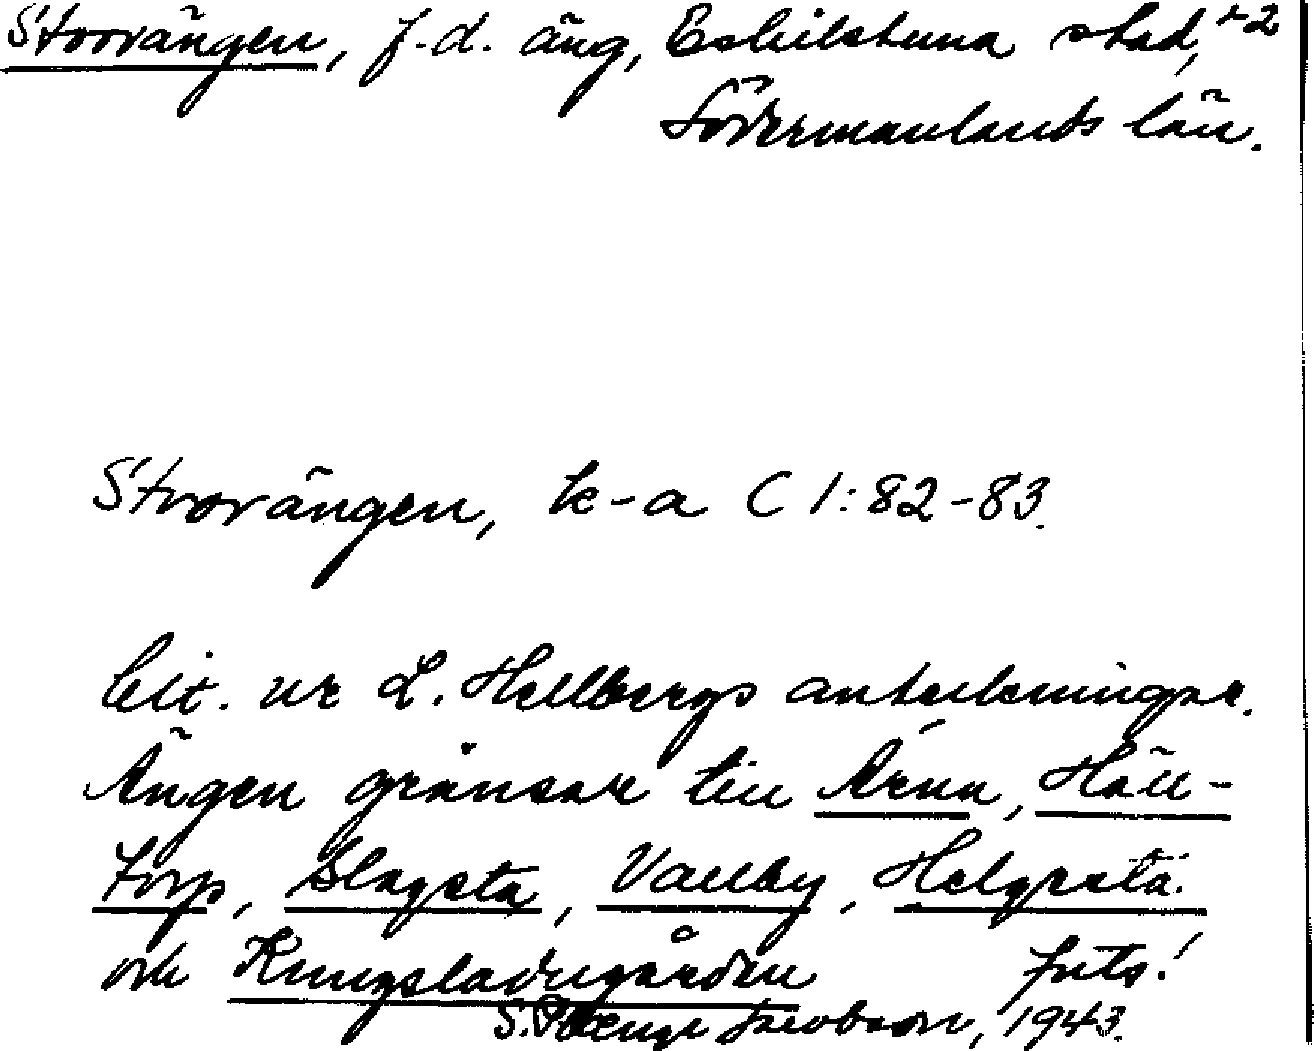 Storrängen, f.d. äng, Eskilstuna stad, +2
Södermanlands län.
Storrängen, k-a C 1:82-83.
Cit. ur L. Hellbergs anteckningar.
Ängen gränsar till Ärna, Häll-
torp, Slagsta, Vallby, Helgesta
och Kungsladugården forts!
S. Benge Jacobson, 1943.